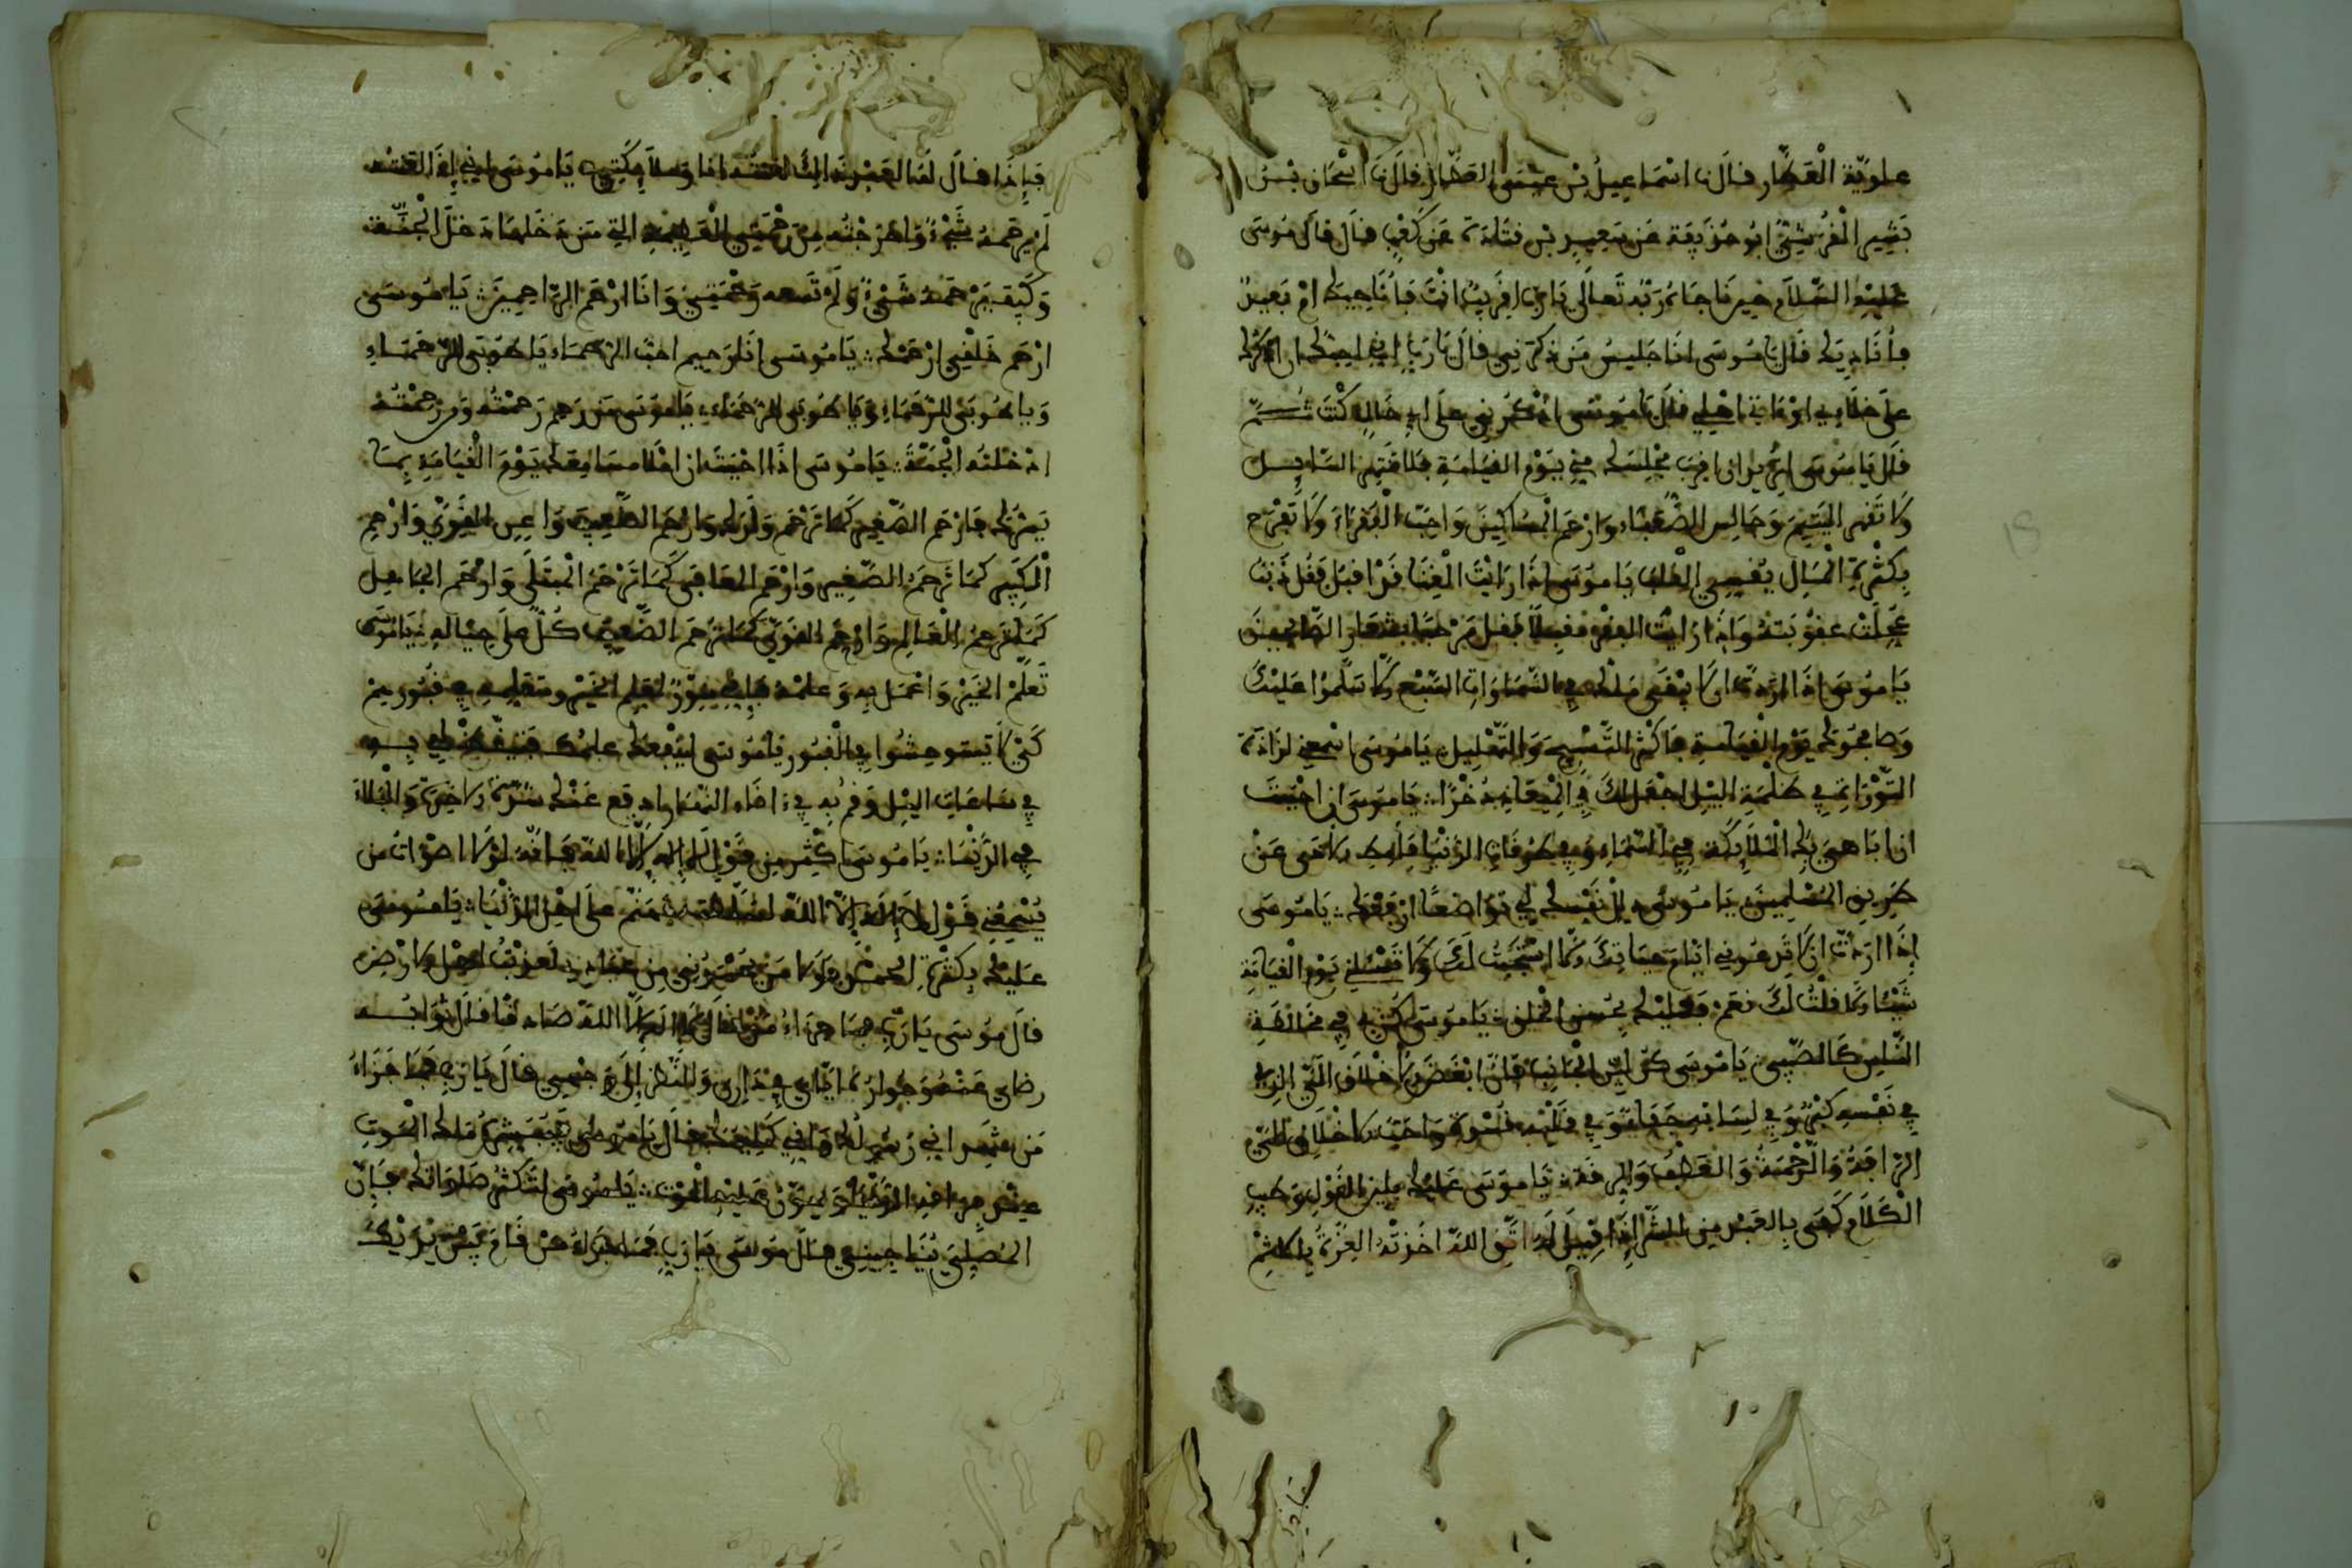 علويّة الْعَطّار قال نا اسْمَاعِيلُ بْن عِيسَى العَطّار قال نا اسْحَاق بْـن
بَشِير الْقُرَشِيّ ابُو حُذَيفَة عَن سَعِيدِ بْن قتَادَة عَن كَعْبٍ قال قال مُوسَى
عَلَيْهِ السَّلَام حِين نَاجَاهُ رَبّه تَعالَى يَا رَبّ اقَرِيبٌ انْتَ فَأُنَاجِيكَ امْ بَعِيدٌ
فأُنَادِيكَ قال يا مُوسَى انَا جَلِيسُ مَن ذَكَرَنِي قال يَا رَبّ انِي اجِلّكَ ان اذكُركَ
عَلَى خلَاءي اوْ مَاتِي اهْلِي قال يَا مُوسَى اذْكُرنِي عَلَى ايّ حَالٍ كُنْتَ ثُـمّ
قال يَا مُوسَى اتُريد ان اقرب مجْلِسَك مِنّي يَوْم القِيَامَةِ فلا تَنْهر السَّايِـل
وَلا تَقْهر اليَتِيمَ وَجَالِس الضُّعَفَاء وَارْحَم الْمسَاكِينَ وَاحِبّ الْفُقَرَاءَ وَلا تَفْرَح
بِكَثْرَةِ الْمَالِ يُفْسِدِ الْقَلْب يَا مُوسَى اذَا رَايْتَ الْغِنَا قَدْ اقبَل فَقُل ذَنبٌ
عُجِّلَتْ عقُوبَتهُ وَاذَا رَايتَ الفقْر مقبِلًا فقل مَرْحَبًا بشعَار الصّالحِينَ
يَا مُوسَى اذَا ارَدتّ ان لا يبْقَى مَلَكٌ فِي السّمَاوَات السّبْع الّا سَلّموا عَلَيْكَ
وَصَافَحُوكَ يَوْم الْقِيَامَةِ فاكْثر التّسْبِيحِ وَالتّهْلِيلِ يَا مُوسَى اسْمِعني لَذَاذَة
التّوْرَاةِ فِي ظُلْمَةِ اللّيْلِ اجْعَل لكَ فِي الْمعَادِ ذُخْرًا يَا مُوسَى ان احْبَبْتَ
ان ابَاهِيَ بكَ الْمَلَايِكَة فِي السّمَاءِ وَفِي طُرُقَاتِ الدّنْيَا فأمِطِ الاذَى عَنْ
طَرِيقِ الْمُسْلِمِينَ يَا مُوسَى ذلّل نَفْسَكَ لِي تَوَاضُعًا ارْفَعْكَ يَا مُوسَى
إذَا ارَدتّ ان لا تَدْعُوني ايّامَ حيَاتِكَ الّا اسْتَجَبْتُ لَكَ وَلا تَسْئلنِي يَوْمَ الْقِيَامَةِ
شَيْئًا الّا قلْتُ لَكَ نعَمْ فَعَليْكَ بحُسْنِ الْخلُقِ يَا مُوسَى كُن فِي مخَالَطَةِ
النّاسِ كَالصّبِيّ يَا مُوسَى كن ليّن الْجَانِب فإنّ ابْغَضَ الاخْلَاقِ الَيّ الذِي
فِي نَفْسِهِ كِبْرٌ وَفِي لِسَانِهِ جَفَا وَفِي قَلْبِهِ قَسْوَة وَاحَبّ الاخْلَاقِ الَيّ
الرّافَةُ وَالرّحْمَةُ وَالعَطْفُ وَالرِقّة يَا مُوسَى عَلَيْكَ بِلِينِ الْقَوْلِ وَطيبِ
الْكَلَامِ كَفَى بِالعَبْد مِن الشّرّ إذَا قِيلَ لَهُ اتّقِ اللهَ اخَذَتْهُ الْعِزّةُ بِالاثْمِ
فَإِذَا قال لهَا العَبْد
لَمْ يَرْحَمهُ شَيْءٌ وَاخْرَجْتُه مِن رَحْمَتِي الْعَظِيمَةِ التِي مَن دَخَلهَا دَخلَ الْجَنّة
وَكَيْفَ يَرْحَمهُ شَيْءٌ وَلَمْ تَسَعهُ رَحْمَتِي وَانَا ارْحَم الرّاحِمِينَ يَا مُوسَى
ارْحَم خَلْقِي ارْحَمْكَ يَا مُوسَى انَا رَحِيم احبّ الرّحَمَاء يَا طُوبَى للرّحَمَاءِ
وَيَا طُوبَى للرّحَمَاءِ وَيَا طُوبَى للرّحَمَاءِ يَا مُوسَى مَن رَحِمَ رَحِمْتُهُ وَمن رَحِمْتُهُ
ادْخَلْتُه الْجَنّةَ يَا مُوسَى اذَا احْبَبْتَ ان امْلا مسَامِعَكَ يَوْمَ الْقِيَامَةِ بِمَـا
يَسُرّكَ فَارْحَم الصّغِيرَ كمَا تَرْحَم وَلَدَكَ وَارْحَم الضّعِيفَ وَاعِن القَوِيّ وَارْحم
الْكَبِير كمَا تَرحَم الصّغِير وَارْحَم المعَافَى كمَا تَرْحَم الْمبْتَلَى وَارْحَم الجَاهِل
كمَا تَرْحَم الْعَالِم وَارْحَم القَوِيّ كمَا تَرْحَم الضّعِيفَ كُلّ عَلَى حِيَالِهِ يَا مُوسَى
تَعَلّمْ الخَيْرَ وَاعْمَل بِهِ وَعلّمْهُ فَإِنّي مُنَوّرٌ لمُعَلّم الخَيْر وَمتَعَلّمِهِ فِي قُبُورهِمْ
كَيْ لا يَسْتَوحِشُوا فِي الْقُبُور يَا مُوسَى لِيَنْفَعكَ علمُك
فِي سَاعَاتِ اللّيْلِ وَقم بِهِ فِي اناء النّهَار ادفَع عَنْكَ شَرّ الاخِرَةِ وَالْبَلَاءَ
فِي الدّنْيَا يَا مُوسَى اكْثِر مِن قَوْلِ لا إله إلّا الله فَإنّهُ لَوْلا اصْوَات مَن
يُسْمِعُنِي قَوْل لا إله إلّا الله لَسَلّطْت جَهَنّم عَلَى اهْلِ الدّنْيَا يَا مُوسَى
عَلَيْكَ بِكَثْرَةِ
قال مُوسَى يَا رَبّ فمَا جزَاءُ مَن قالَ لا إله إلّا الله صَادقًا قال ثَوَابُـه
رضَاي عَنْهُ وَجِوَارهُ ايّايَ فِي دَارِي وَالنّظر إلَى وَجْهِي قال يَا رَبّ فمَا جَزَاءُ
مَن شَهِدَ انّي رَسُولكَ وَانّي كَلِيمكَ قال يَا مُوسَى تُبَشّرهُ مَلَايِكَة الْمَوْتِ
الْمُصَلّيَ يُنَاجِينِي قالَ مُوسَى يَا رَبّ فمَا جَزَاءُ مَنْ قَامَ بَيْنَ يَدَيْكَ